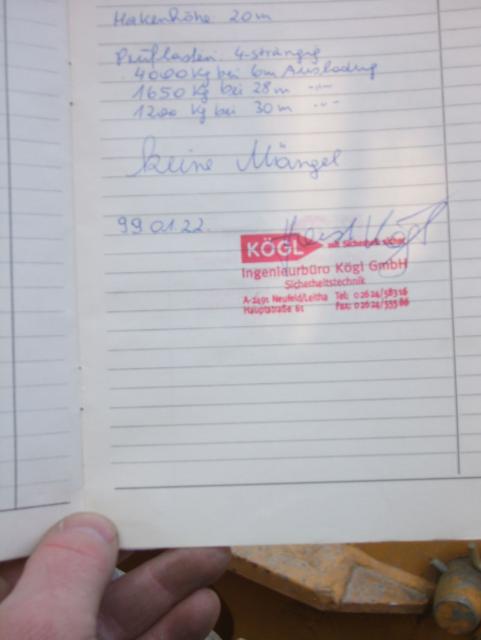 Hakenhöhe 20m
Prüflasten: 4-strängig
4000 kg bei 6m Ausladung
1650 kg bei 28m -"-
1200 kg bei 30m -"-
keine Mängel
99 01.22.
Horst Kögl
KÖGL mit Sicherheit sicher
Ingenieurbüro Kögl GmbH
Sicherheitstechnik
A-2491 Neufeld/Leitha Tel: 02624/58316
Hauptstraße 61 Fax: 02624/55586